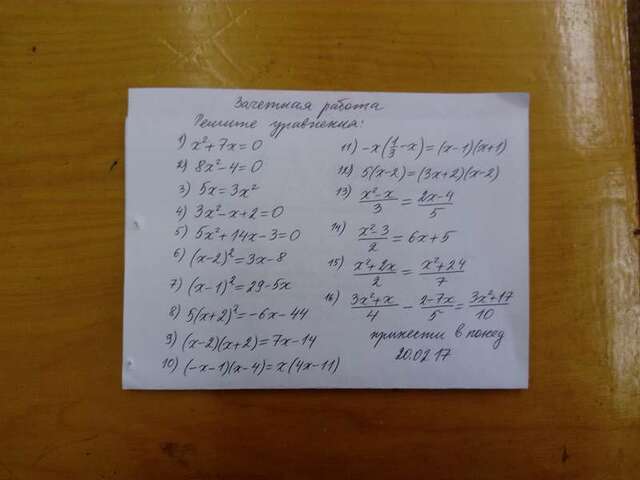 Зачетная работа
Решите уравнения:
1) x² + 7x = 0
2) 8x² - 4 = 0
3) 5x = 3x²
4) 3x² - x + 2 = 0
5) 5x² + 14x - 3 = 0
6) (x - 2)² = 3x - 8
7) (x - 1)² = 29 - 5x
8) 5(x + 2)² = -6x - 44
9) (x - 2)(x + 2) = 7x - 14
10) (-x - 1)(x - 4) = x(4x - 11)
11) -x(1/3 - x) = (x - 1)(x + 1)
12) 5(x - 2) = (3x + 2)(x - 2)
13) (x² - x)/3 = (2x - 4)/5
14) (x² - 3)/2 = 6x + 5
15) (x² + 2x)/2 = (x² + 24)/7
16) (3x² + x)/4 - (2 - 7x)/5 = (3x² + 17)/10
принести в понед
20.02.17